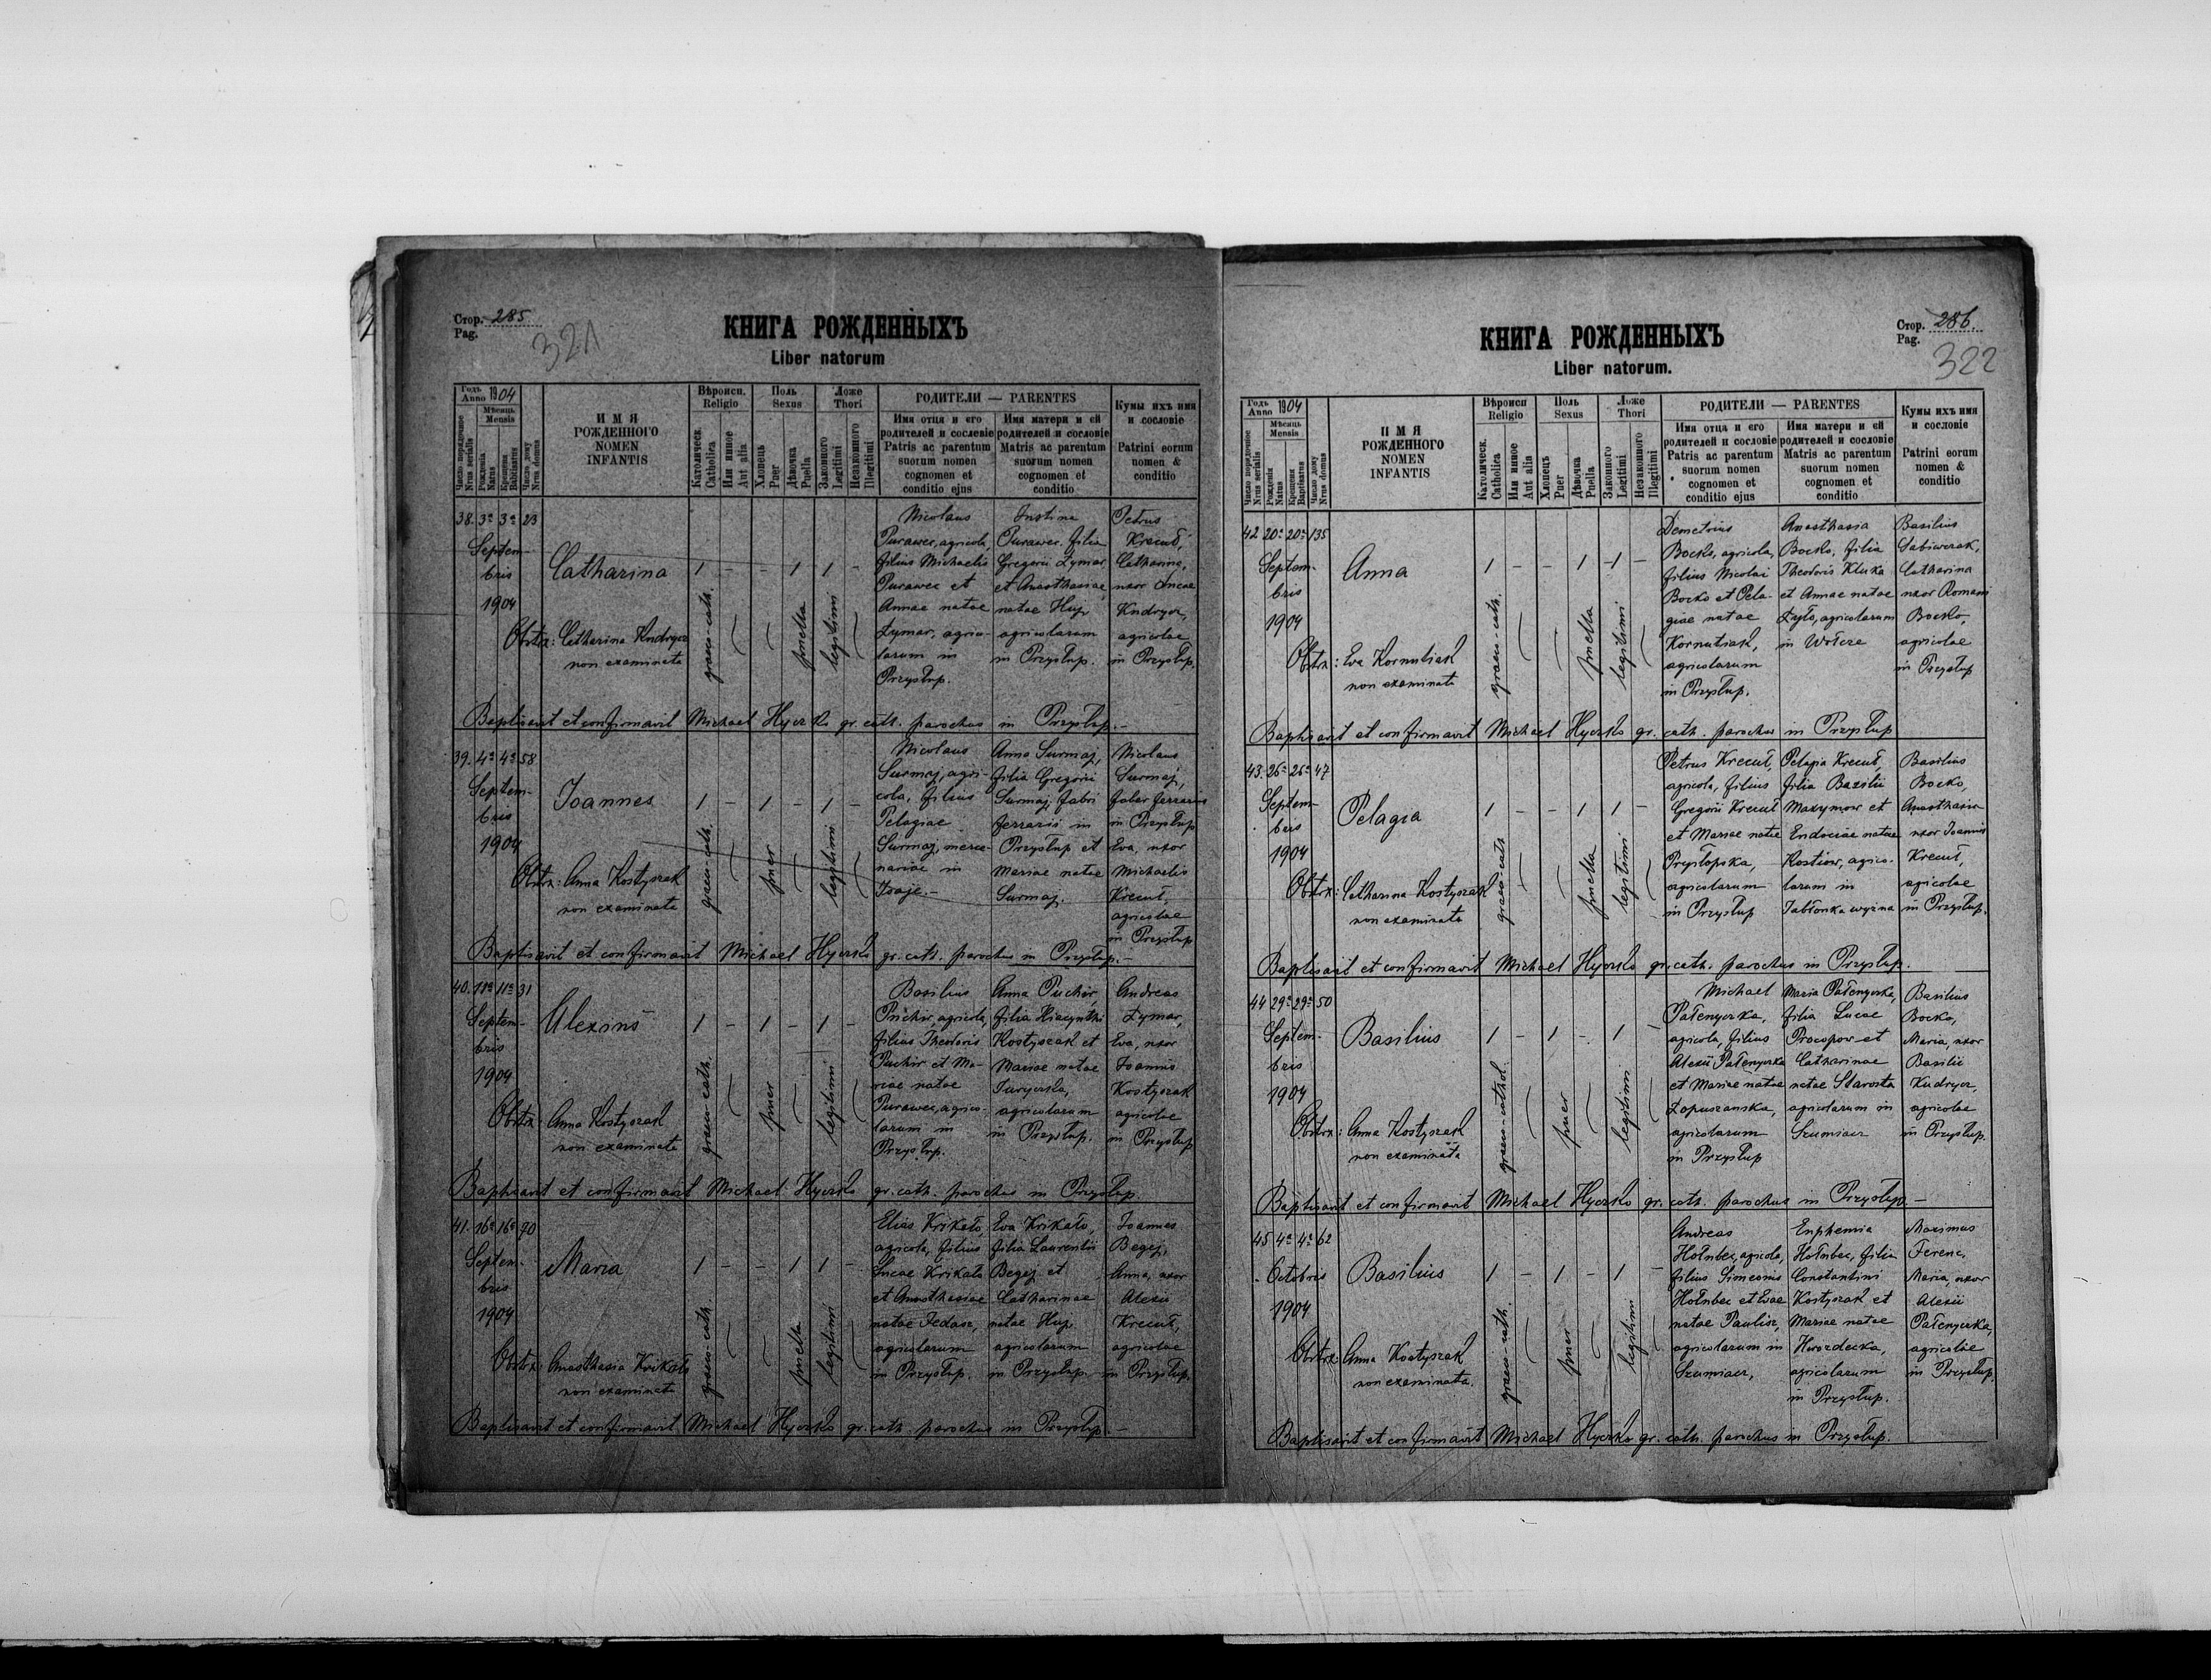 Стор. 285
Pag.
321
КНИГА РОЖДЕННЫХЪ
Liber natorum
Годъ 1904
Anno
Мѣсяць
Mensis
Число порядочное
Nrus serialis
Рожденія
Natus
Крещенія
Babtisatus
Число дому
Nrus domus
ИМЯ
РОЖДЕННОГО
NOMEN
INFANTIS
Вѣроисп.
Religio
Католическ.
Catholica
Или инное
Aut alia
Поль
Sexus
Хлопець
Puer
Дѣвочка
Puella
Ложе
Thori
Законного
Legitimi
Незаконного
Illegitimi
РОДИТЕЛИ — PARENTES
Имя отца и его
родителей и сословіе
Patris ac parentum
suorum nomen
cognomen et
conditio ejus
Имя матери и ей
родителей и сословіе
Matris ac parentum
suorum nomen
cognomen et
conditio
Кумы ихъ имя
и сословіе
Patrini eorum
nomen &
conditio
38. 3a 3a 23
Septem-
bris
1904
Catharina
1 - - 1 1 -
graeco-cath.
puella
legitimi
Obstrx: Catharina Kudrycz
non examinata
Nicolaus
Purawec, agricola,
filius Michaelis
Purawec et
Annae natae
Żymar, agrico-
larum in
Przysłup.
Justina
Purawec, filia
Gregorii Żymar
et Anasthasiae
natae Hup,
agricolarum
in Przysłup.
Petrus
Krecuł,
Catharina,
uxor Lucae
Kudrycz,
agricolae
in Przysłup.
Baptisavit et confirmavit Michael Hyczko gr. cath. parochus in Przysłup.-
39. 4a 4a 58
Septem-
bris
1904
Joannes
1 - 1 - 1 -
graeco-cath.
puer
legitimi
Obstrx: Anna Kostyszak
non examinata
Nicolaus
Surmaj, agri-
cola, filius
Pelagiae
Surmaj, merce-
nariae in
Isaje.-
Anna Surmaj,
filia Gregorii
Surmaj, fabri
ferrarii in
Przysłup et
Mariae natae
Surmaj.
Nicolaus
Surmaj,
faber ferrarius
in Przysłup
Eva, uxor
Michaelis
Krecuł,
agricolae
in Przysłup
Baptisavit et confirmavit Michael Hyczko gr. cath. parochus in Przysłup.-
40. 11a 11a 31
Septem-
bris
1904
Alexius
1 - 1 - 1 -
graeco-cath.
puer
legitimi
Obstrx: Anna Kostyszak
non examinata
Basilius
Puchir, agricola,
filius Theodoris
Puchir et Ma-
riae natae
Purawec, agrico-
larum in
Przysłup.
Anna Puchir,
filia Hiacynthi
Kostyszak et
Mariae natae
Juryczka,
agricolarum
in Przysłup.
Andreas
Żymar,
Eva, uxor
Joannis
Kostyszak
agricolae
in Przysłup
Baptisavit et confirmavit Michael Hyczko gr. cath. parochus in Przysłup.
41. 16a 16a 20
Septem-
bris
1904
Maria
1 - - 1 1 -
graeco-cath.
puella
legitimi
Obstrx: Anasthasia Krikało
non examinata
Elias Krikało,
agricola, filius
Lucae Krikało
et Anasthasiae
natae Fedasz,
agricolarum
in Przysłup.
Eva Krikało,
filia Laurentii
Begej et
Catharinae
natae Hup
agricolarum
in Przysłup.
Joannes
Begej,
Anna, uxor
Alexii
Krecuł,
agricolae
in Przysłup.
Baptisavit et confirmavit Michael Hyczko gr. cath. parochus in Przysłup.-
Стор. 286.
Pag.
322
КНИГА РОЖДЕННЫХЪ
Liber natorum.
Годъ 1904
Anno
Мѣсяць
Mensis
Число порядочное
Nrus serialis
Рожденія
Natus
Крещенія
Baptisatus
Число дому
Nrus domus
ИМЯ
РОЖДЕННОГО
NOMEN
INFANTIS
Вѣроисп
Religio
Католическ.
Catholica
Или инное
Aut alia
Поль
Sexus
Хлопецъ
Puer
Дѣвочка
Puella
Ложе
Thori
Законного
Legitimi
Незаконного
Illegitimi
РОДИТЕЛИ — PARENTES
Имя отца и его
родителей и сословіе
Patris ac parentum
suorum nomen
cognomen et
conditio ejus
Имя матери и ей
родителей и сословіе
Matris ac parentum
suorum nomen
cognomen et
conditio
Кумы ихъ имя
и сословіе
Patrini eorum
nomen &
conditio
42 20a 20a 135
Septem-
bris
1904
Anna
1 - - 1 1 -
graeco-cath.
puella
legitimi
Obstrx: Eva Kornutiak
non examinata
Demetrius
Bocko, agricola,
filius Nicolai
Bocko et Pela-
giae natae
Kornutiak,
agricolarum
in Przysłup.
Anasthasia
Bocko, filia
Theodoris Kluka
et Annae natae
Żyło, agricolarum
in Wołcze
Basilius
Catharina
uxor Romani
Bocko,
agricolae
in Przysłup
Baptisavit et confirmavit Michael Hyczko gr. cath. parochus in Przysłup
43. 26a 26a 47
Septem-
bris
1904
Pelagia
1 - - 1 1 -
graeco-cath
puella
legitimi
Obstrx: Catharina Kostyszak
non examinata
Petrus Krecuł,
agricola, filius
Gregorii Krecuł
et Mariae natae
Prysłopska,
agricolarum
in Przysłup
Pelagia Krecuł,
filia Basilii
Maxymow et
Eudociae natae
Kostiow, agrico-
larum in
Jabłonka wyżna
Basilius
Bocko,
Anasthasia
uxor Joannis
Krecuł,
agricolae
in Przysłup.
Baptisavit et confirmavit Michael Hyczko gr. cath. parochus in Przysłup.
44 29a 29a 50
Septem-
bris
1904
Basilius
1 - 1 - 1 -
graeco-cathol.
puer
legitimi
Obstrx: Anna Kostyszak
non examinata
Michael
Pałenyczka,
agricola, filius
Alexii Pałenyczka
et Mariae natae
Łopuszanska,
agricolarum
in Przysłup
Maria Pałenyczka,
filia Lucae
Procopow et
Catharinae
natae Starosta
agricolarum in
Szumiacz
Basilius
Bocko,
Maria, uxor
Basilii
Kudrycz,
agricolae
in Przysłup.
Baptisavit et confirmavit Michael Hyczko gr. cath. parochus in Przysłup.-
45 4a 4a 62
Octobris
1904
Basilius
1 - 1 - 1 -
graeco-cath.
puer
legitimi
Obstrx: Anna Kostyszak
non examinata.
Andreas
Hołubec, agricola,
filius Simeonis
Hołubec et Evae
natae Paulisz,
agricolarum in
Szumiacz,
Euphemia
Hołubec, filia
Constantini
Kostyszak et
Mariae natae
Hwozdecka,
agricolarum
in Przysłup.
Maximus
Ferenc,
Maria, uxor
Alexii
Pałenyczka,
agricolae
in Przysłup.
Baptisavit et confirmavit Michael Hyczko gr. cath. parochus in Przysłup.